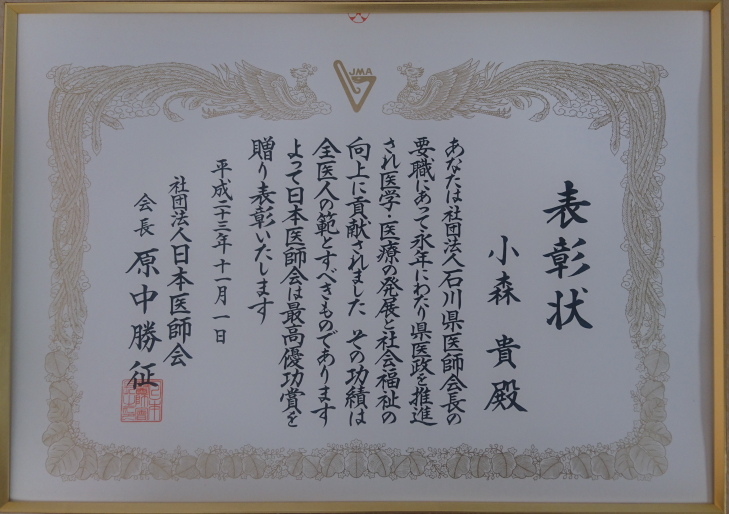 JMA
表彰状
小森 貴 殿
あなたは社団法人石川県医師会長の
要職にあって永年にわたり県医政を推進
され医学・医療の発展と社会福祉の
向上に貢献されました その功績は
全医人の範とすべきものであります
よって日本医師会は最高優功賞を
贈り表彰いたします
平成二十三年十一月一日
社団法人日本医師会
会長 原中勝征